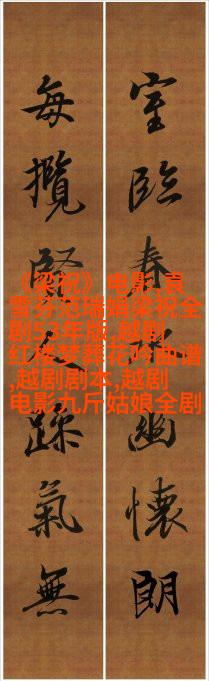 室臨春幽懷朗
每攬氣無
《梁祝》电影,袁
雪芬范瑞娟梁祝全
剧53年版,越剧
红楼梦葬花吟曲谱
,越剧剧本,越剧
电影九斤姑娘全剧